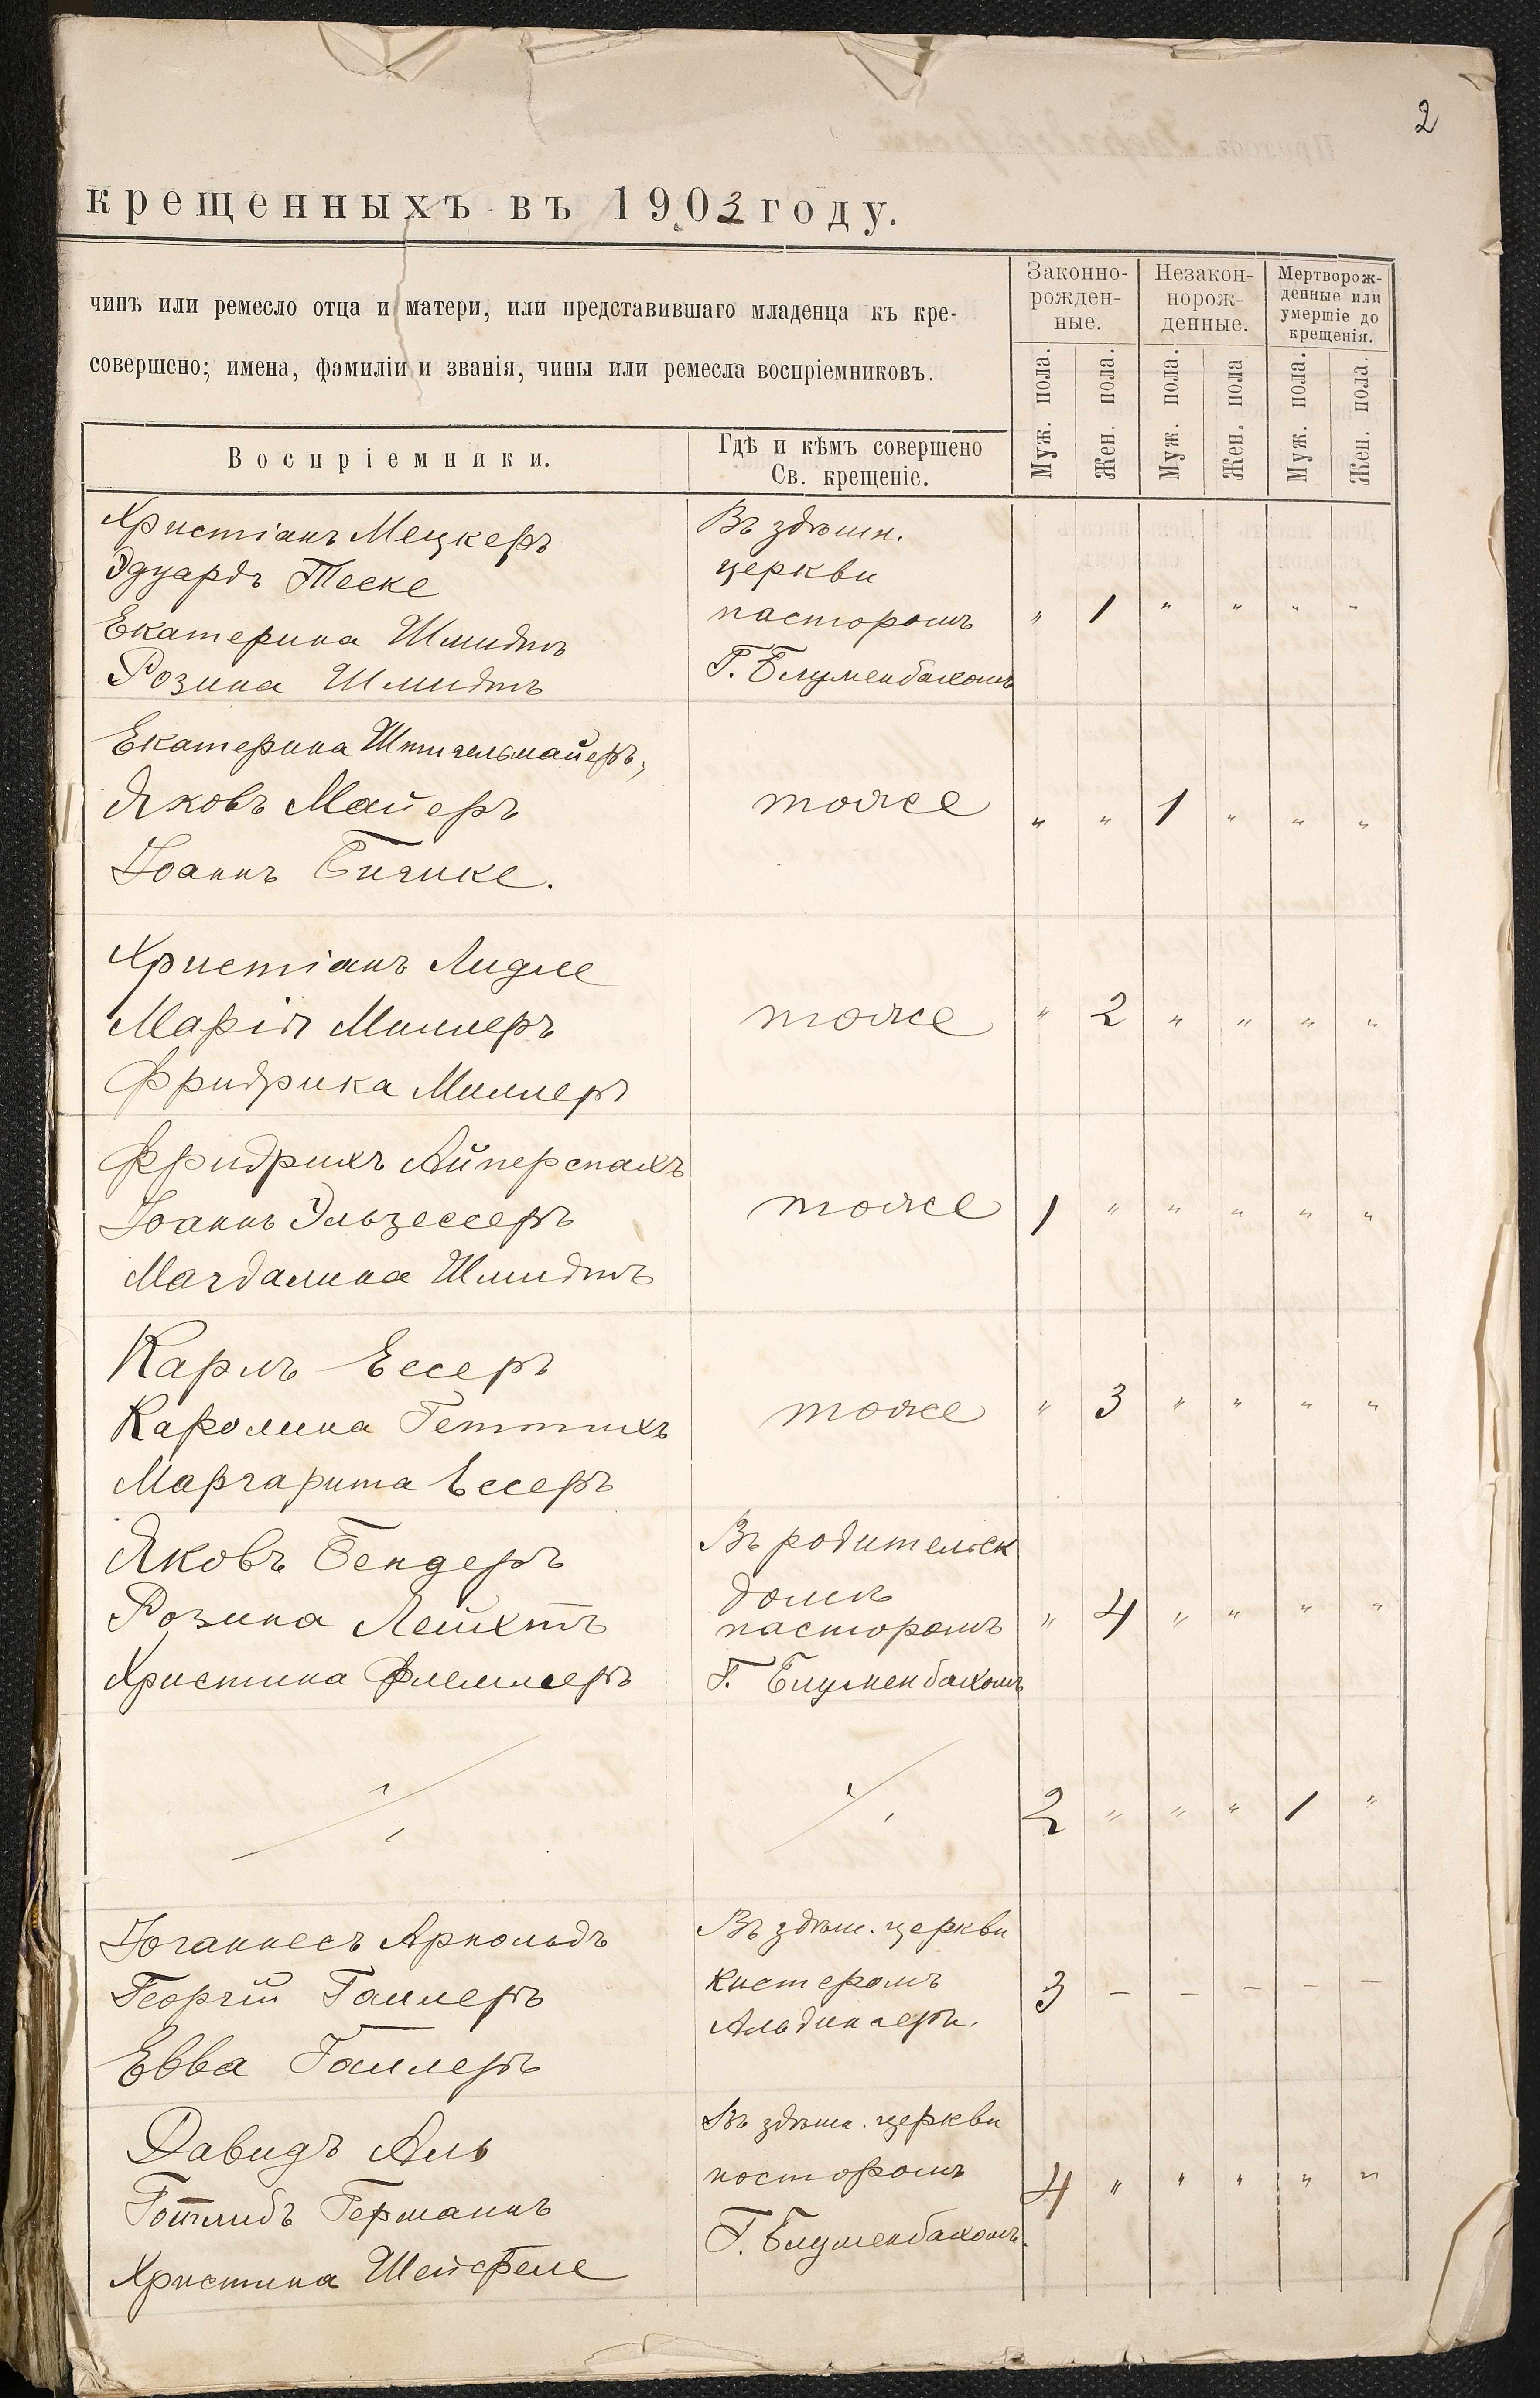 2
крещенныхъ въ 1903 году.
чинъ или ремесло отца и матери, или представившаго младенца къ кре-
совершено; имена, фамиліи и званія, чины или ремесла воспріемниковъ.
Законно-
рожден-
ные.
Незакон-
норож-
денные.
Мертворож-
денные или
умершіе до
крещенія.
Муж. пола.
Жен. пола.
Муж. пола.
Жен. пола
Муж. пола.
Жен. пола.
Воспріемники.
Гдѣ и кѣмъ совершено
Св. крещеніе.
Христіанъ Мецкеръ
Эдуардъ Теске
Екатерина Шмидтъ
Розина Шмидтъ
Въ здѣшн.
церкви
пасторомъ
Г. Блуменбахомъ
" 1 " " " "
Екатерина Штигельмайеръ,
Яковъ Майеръ
Іоаннъ Бигике.
тоже
" " 1 " " "
Христіанъ Лидле
Марія Миллеръ
Фридрика Миллеръ
тоже
" 2 " " " "
Фридрихъ Айперспахъ
Іоаннъ Эльзессеръ
Магдалина Шмидтъ
тоже
1 " " " " "
Карлъ Ессеръ
Каролина Геттихъ
Маргарита Ессеръ
тоже
" 3 " " " "
Яковъ Бендеръ
Розина Лейхтъ
Христина Флеммеръ
Въ родительск
домѣ
пасторомъ
Г. Блуменбахомъ
" 4 " " " "
2 " " " 1 "
Іоганнесъ Арнольдъ
Георгій Галлеръ
Евва Галлеръ
Въ здѣш. церкви
Кистеромъ
Альдингеръ.
3 – – – – –
Давидъ Аль
Готлибъ Германнъ
Христина Шейфеле
Въ здѣшн. церкви
пасторомъ
Г. Блуменбахомъ.
4 " " " " "